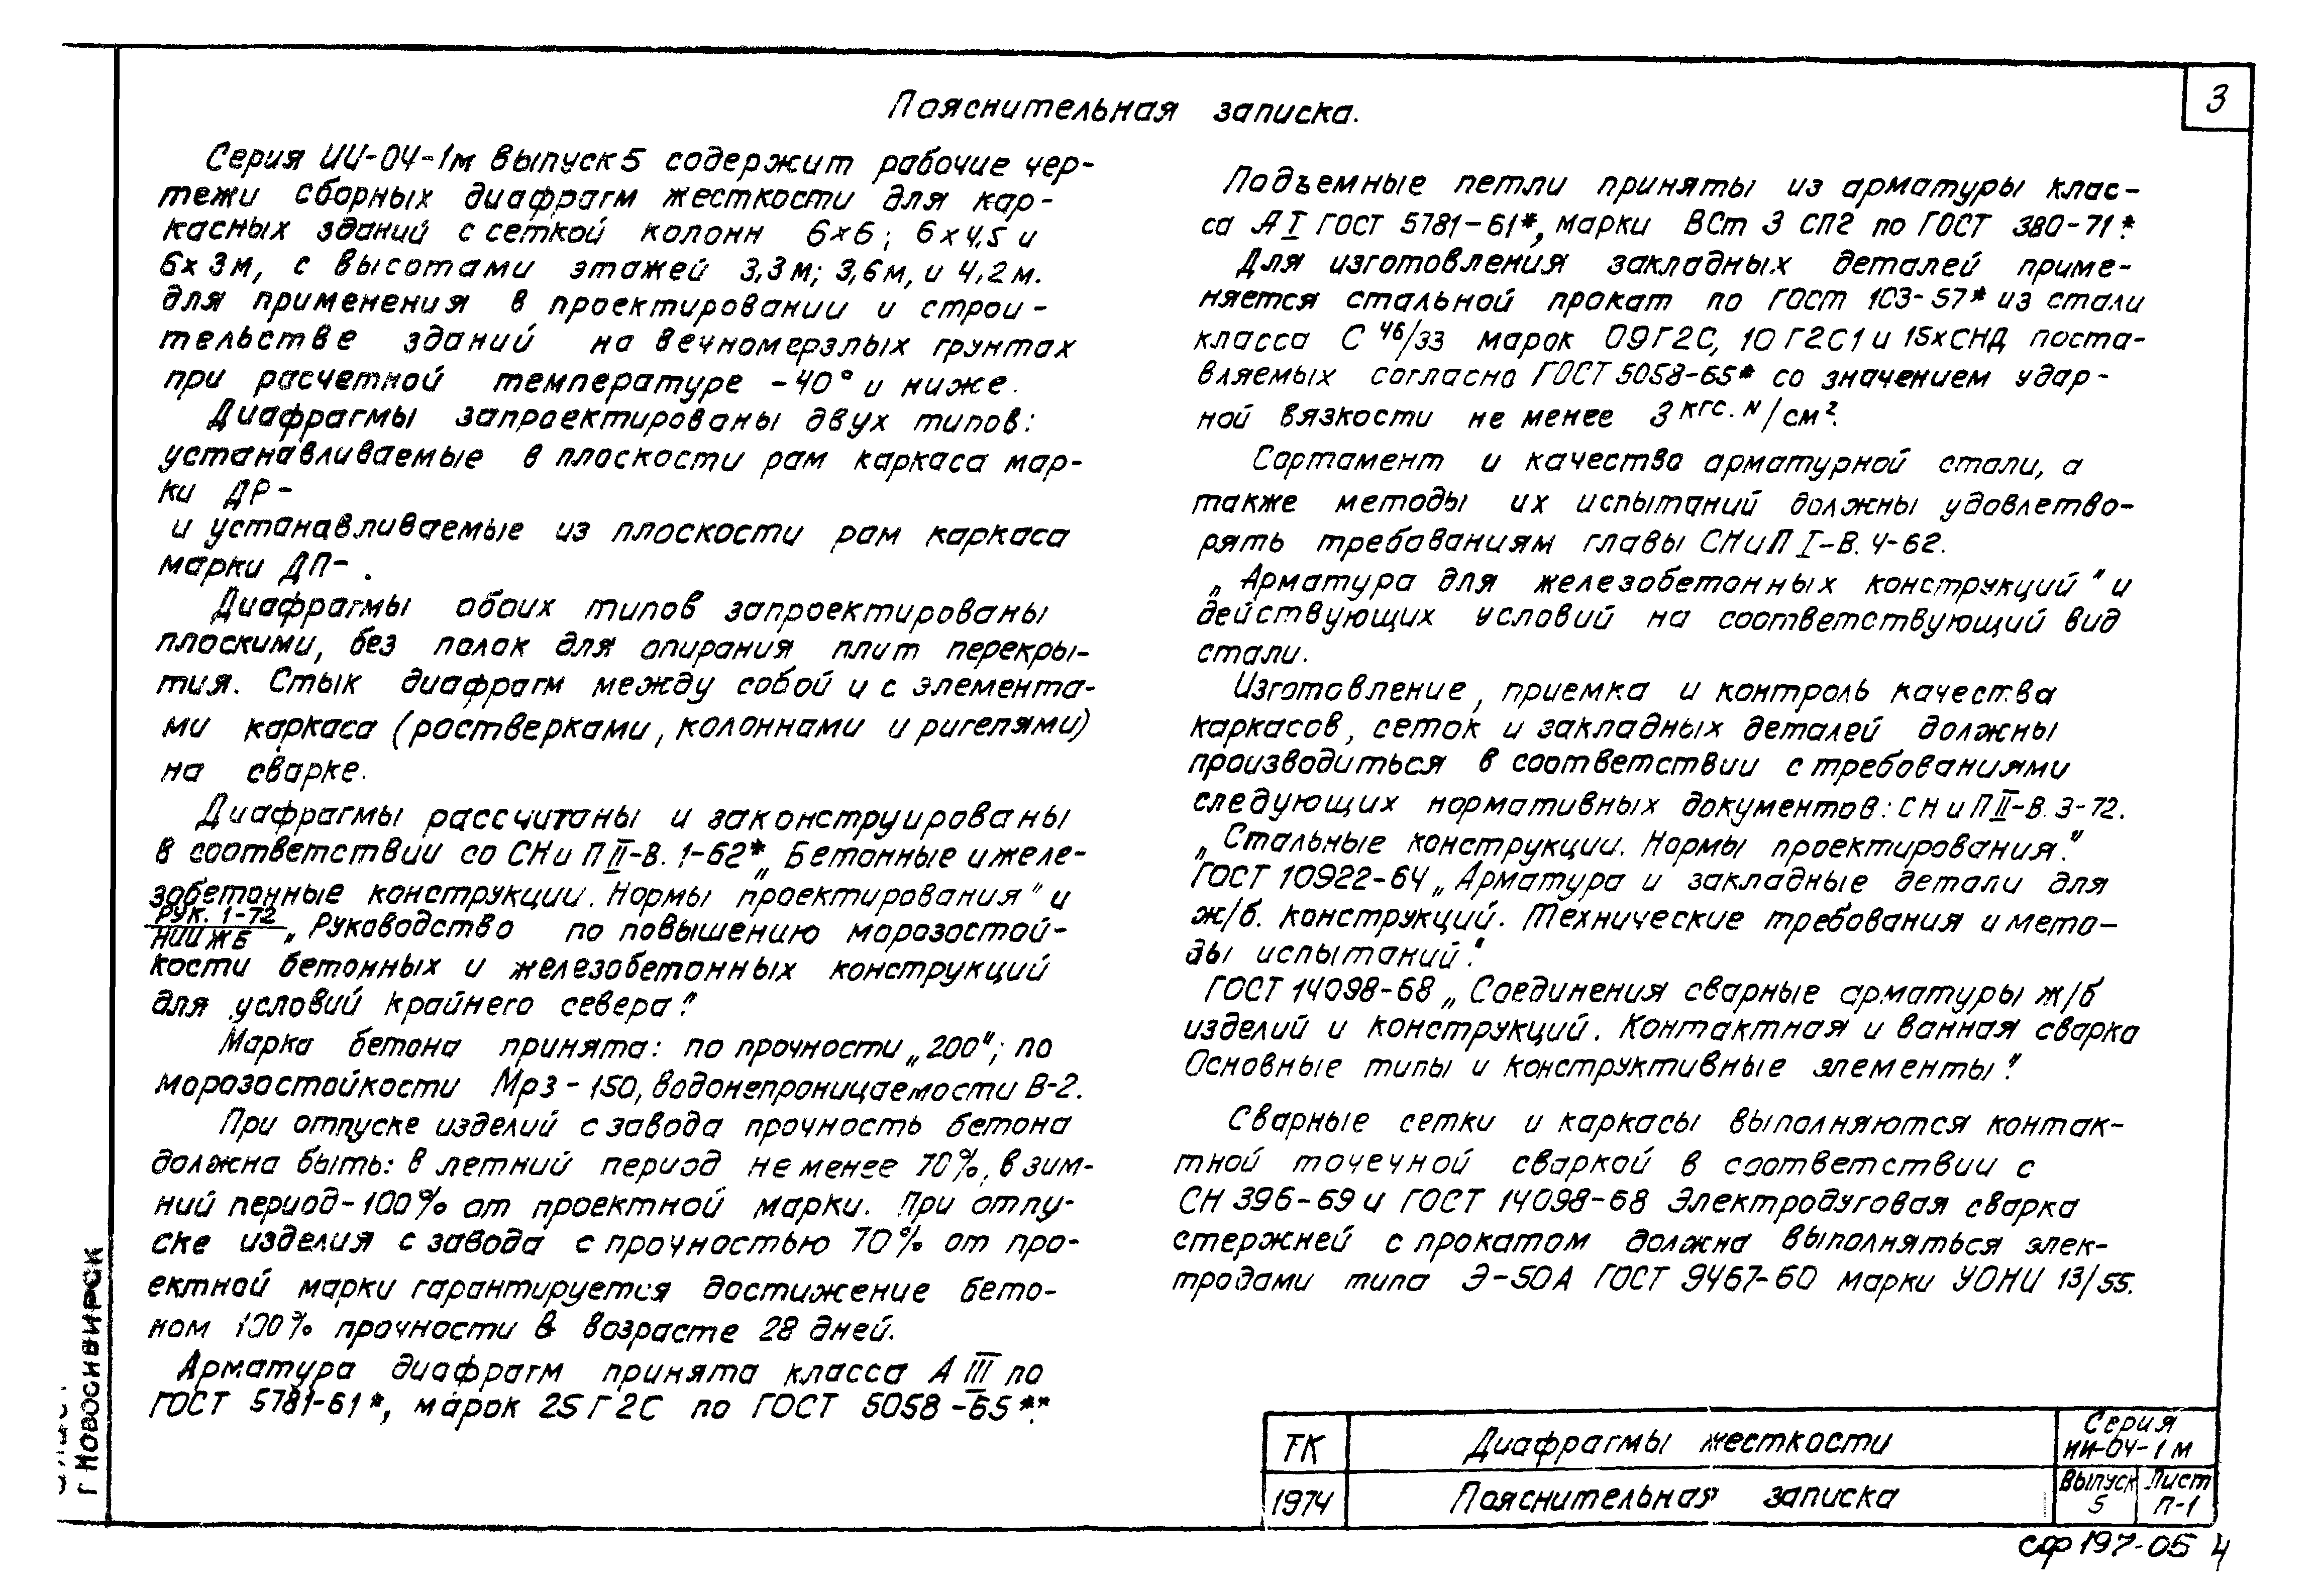 3
Пояснительная записка.
Серия ИИ-04-1м выпуск 5 содержит рабочие чер-
тежи сборных диафрагм жесткости для кар-
касных зданий с сеткой колонн 6х6; 6х4,5 и
6х3м, с высотами этажей 3,3м; 3,6м, и 4,2м.
для применения в проектировании и строи-
тельстве зданий на вечномерзлых грунтах
при расчетной температуре -40° и ниже.
Диафрагмы запроектированы двух типов:
устанавливаемые в плоскости рам каркаса мар-
ки ДР-
и устанавливаемые из плоскости рам каркаса
марки ДП- .
Диафрагмы обоих типов запроектированы
плоскими, без полок для опирания плит перекры-
тия. Стык диафрагм между собой и с элемента-
ми каркаса (ростверками, колоннами и ригелями)
на сварке.
Диафрагмы рассчитаны и законструированы
в соответствии со СНиП II-В. 1-62* „Бетонные и желе-
зобетонные конструкции. Нормы проектирования" и
РУК. 1-72
НИИЖБ „Руководство по повышению морозостой-
кости бетонных и железобетонных конструкций
для условий крайнего севера".
Марка бетона принята: по прочности „200"; по
морозостойкости Мрз-150, водонепроницаемости В-2.
При отпуске изделий с завода прочность бетона
должна быть: в летний период не менее 70%, в зим-
ний период-100% от проектной марки. При отпу-
ске изделия с завода с прочностью 70% от про-
ектной марки гарантируется достижение бето-
ном 100% прочности в возрасте 28 дней.
Арматура диафрагм принята класса А III по
ГОСТ 5781-61*, марок 25Г2С по ГОСТ 5058-65**.
Подъемные петли приняты из арматуры клас-
са А I ГОСТ 5781-61*, марки ВСт 3 сп2 по ГОСТ 380-71*.
Для изготовления закладных деталей приме-
няется стальной прокат по ГОСТ 103-57* из стали
класса С 46/33 марок 09Г2С, 10Г2С1 и 15хСНД поста-
вляемых согласно ГОСТ 5058-65* со значением удар-
ной вязкости не менее 3 кгс.м/см².
Сортамент и качество арматурной стали, а
также методы их испытаний должны удовлетво-
рять требованиям главы СНиП I-В. 4-62.
„Арматура для железобетонных конструкций" и
действующих условий на соответствующий вид
стали.
Изготовление, приемка и контроль качества
каркасов, сеток и закладных деталей должны
производиться в соответствии с требованиями
следующих нормативных документов: СНиП II-В. 3-72.
„Стальные конструкции. Нормы проектирования."
ГОСТ 10922-64 „Арматура и закладные детали для
ж/б. конструкций. Технические требования и мето-
ды испытаний".
ГОСТ 14098-68 „Соединения сварные арматуры ж/б
изделий и конструкций. Контактная и ванная сварка
Основные типы и конструктивные элементы".
Сварные сетки и каркасы выполняются контак-
тной точечной сваркой в соответствии с
СН 396-69 и ГОСТ 14098-68 Электродуговая сварка
стержней с прокатом должна выполняться элек-
тродами типа Э-50А ГОСТ 9467-60 марки УОНИ 13/55.
г Новосибирск
ТК
Диафрагмы жесткости
Серия
ИИ-04-1м
1974
Пояснительная записка
Выпуск
5
Лист
П-1
сф 197-05 4